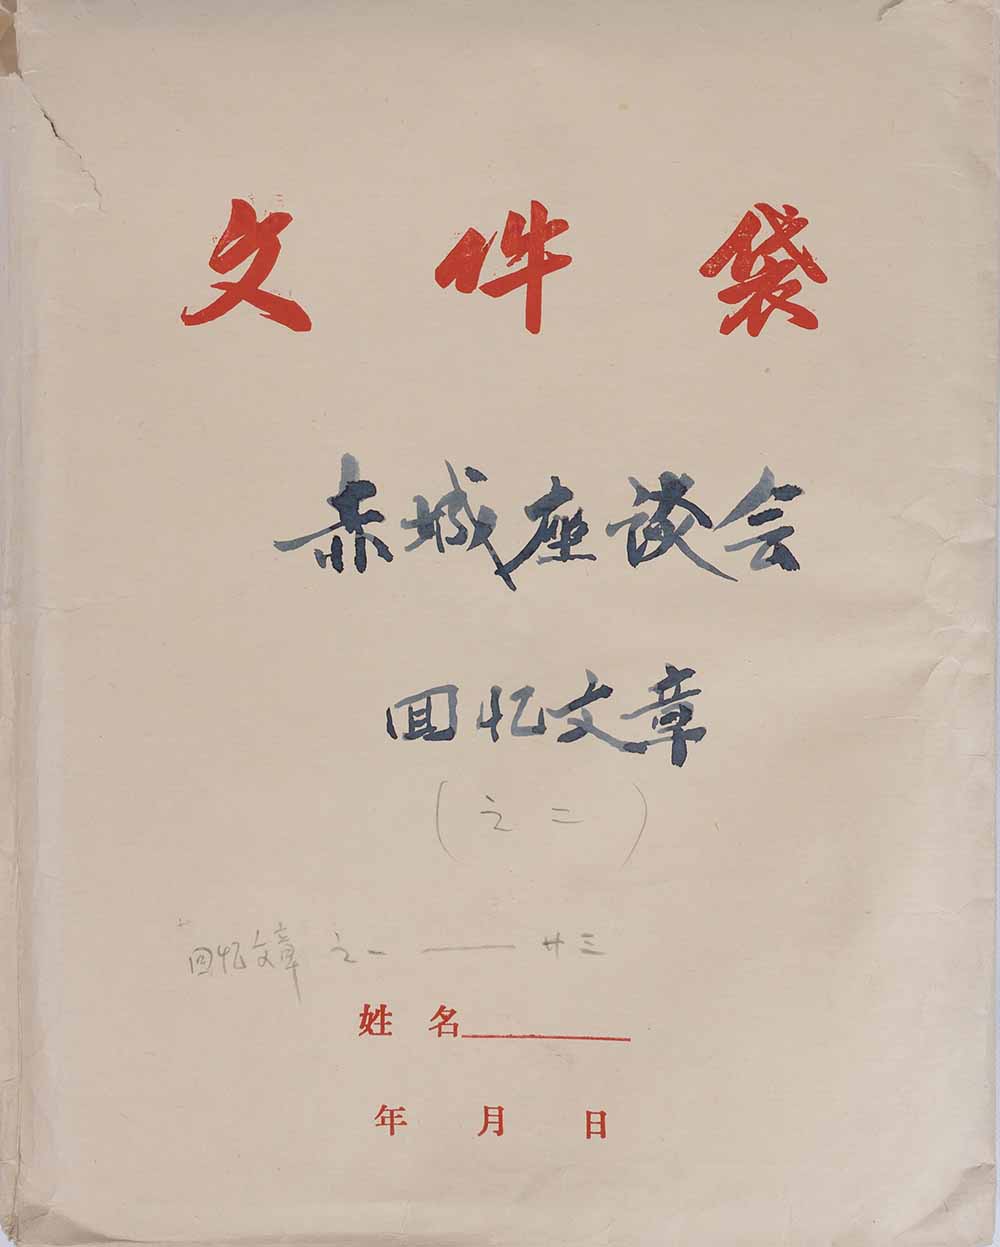 文件袋
赤城座谈会
回忆文章
（之二）
回忆文章 之一 —— 廿三
姓 名
年 月 日